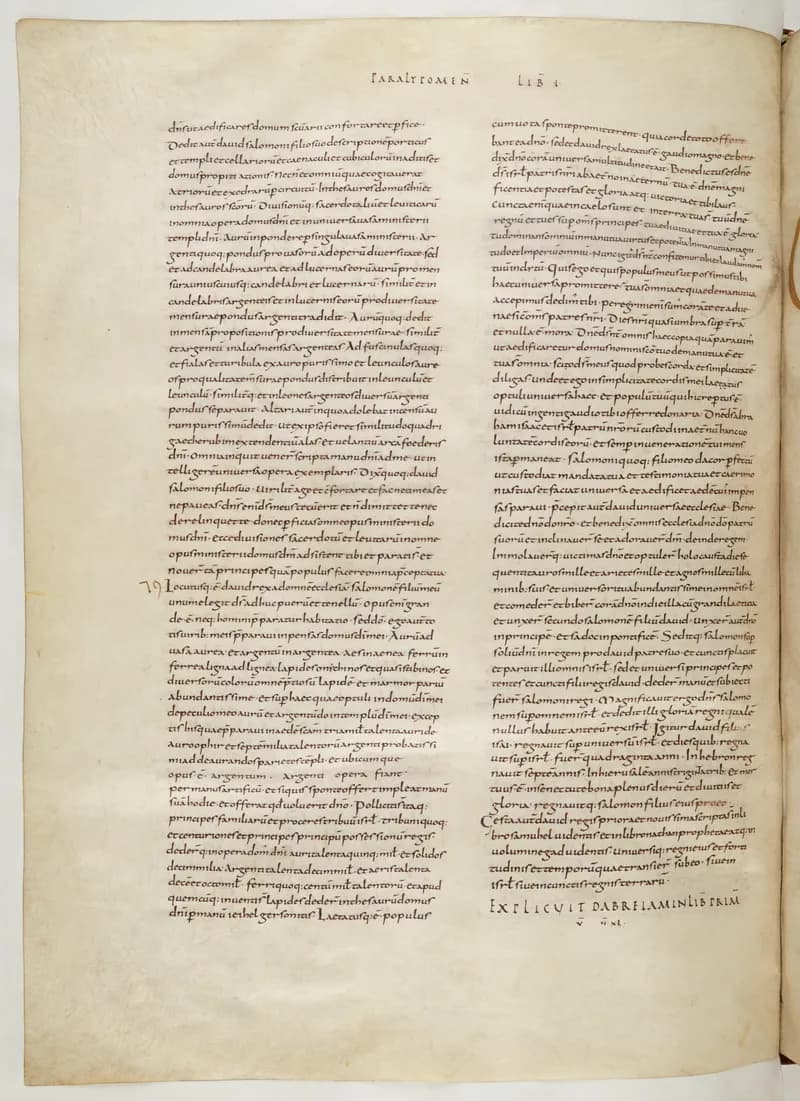 PARALYPOMEÑ LIB̄ I
dn̄s ut aedificares domum scūarii confortare et perfice·
Dedit aut̄ dauid salomoni filio suo descriptionē porticus
et templi et cellariorū et caenaculi et cubiculorū in aditis et
domus propitiationis · Necnē omniū quae cogitauerat
Atriorū et exedrarū p circuitū · In thesauros domus dn̄i et
in thesauros scōrū · Diuisionūq; sacerdotaliū et leuiticarū
in omnia opera domus dn̄i et in uniuersa uasa ministerii
templi dn̄i · Aurū in pondere p singula uasa ministerii · Ar
genti quoq; pondus p uasorū ad operū diuersitate · sed
et ad candelabra aurea et ad lucernas eorū aurū pro men
sura uniuscuiusq; candelabri et lucernarū · similit̄ et in
candelabris argenteis et in lucernis eorū pro diuersitate
mensurae pondus argenti tradidit · Aurū quoq; dedit
in mensas propositionis pro diuersitate mensurae · similit̄
et argentū in alias mensas argenteas · Ad fuscinulas quoq;
et fialas et turibula ex auro purissimo et leunculos aure
os pro qualitate msurae pondus distribuit in leunculū et
leunculū · similit̄q; et in leones argenteos diuersū argenti
pondus separauit · Altari aut̄ in quo adolebat incensū au
rum purissimū dedit · ut ex ipso fieret similitudo quadri
gae cherubim extendentiū alas et uelantiū arcā foederis
dn̄i · Omnia inquit uener̄ scripta manu dn̄i ad me · ut in
telligerē uniuersa opera exemplaris · Dix̄ quoq; dauid
salomoni filio suo · uirilit̄ age et cōfortare et fac ne timeas et
ne paueas · dn̄s enī ds̄ meus tecū erit et n̄ dimittet te nec
derelinquet te · donec p ficias omne opus ministerii do
mus dn̄i · Ecce diuisiones sacerdotū et leuitarū in omne
opus ministeriū domus dn̄i adsistent tibi et parati st̄ et
nouer̄ tā principes quā populus facere omnia p̄cepta tua·
Locutusq; ē dauid rex ad omnē ecclesiā · salomonē filiū meū
unum elegit ds̄ adhuc puerū et tenellū · Opus em̄ gran
de ē neq; homini p paratur habitatio · sed dō · ego aut̄ to
tis uirib; meis p paraui inpensas domus dī mei · Aurū ad
uasa aurea et argentū in argentea · Aes in aenea · ferrum in
ferrea ligna ad lignea lapides onychinos et quasi stibinos et
diuersorū colorū omnēq; p̄tiosū lapidē et marmor pariū
Abundantissime · et sup̄ haec quae optuli in domū dī mei
de peculio meo aurū et argentū do in templū dī mei · excep
tis his quae p paraui in aedē scam̄ tria mil̄ talenta auri de
auro ophir et septē milia talentorū argenti probatissi
mi ad deaurandos parietes tēpli · et ubicumque
opus ē argentum · Argenti opera fiant
per manus artificū · et si quis sponte offert impleat manū
suā hodie et offerat qd uoluerit dn̄o · Polliciti st̄ itaq;
principes familiarū et proceres tribuū isrl̄ · tribuni quoq;
et centuriones et principes principū possessionū regis·
dederq; in opera dom̄ dn̄i auri talenta quinq; mil̄ · et solidos
decē milia · Argenti talenta decē mil̄ · et aeris talenta
decē et octo mil̄ · ferri quoq; centū mil̄ talentorū · et apud
quemcūq; inuenti st̄ lapides deder̄ in thesaurū domus
dn̄i p manū ieihel gersonitis · Laetatusq; ē populus
cum uota sponte promitterent · quia corde toto offere
bant ea dn̄o · sed et dauid rex laetatus ē gaudio magno · et bene
dix̄ dn̄o corā uniuersa multitudine et ait · Benedictus es dn̄e
ds̄ isrl̄ patris nr̄i ab aeterno in aeternū · tua ē dn̄e magni
ficentia et potestas et gloria atq; uictoria et tibi laus·
Cuncta enī quae in caelo sunt et in terra tua st̄ · tuū dn̄e
regnū et tu es sup om̄s principes · tuae diuitiae et tua ē gloria
tu dominaris omniū in manu tua uirtus et potentia · In manu tua magni
tudo et Imperiū omniū · Nunc igit̄ ds̄ nr̄ confitemur tibi et laudamus nom̄
tuū inclitū · Quis ego et quis populus meus ut possimus tibi
haec uniuersa promittere · tua st̄ omnia et quae de manu tua
Accepimus dedim̄ tibi · peregrini enī sum̄ corā te et adue
nae sic̄ om̄s patres nr̄i · Dies nr̄i quasi umbra sup t̄rā
et nulla ē mora · Dn̄e ds̄ nr̄ omnis haec copia quā parauim̄
ut aedificaretur domus nomini scō tuo de manu tua ē · et
tua st̄ omnia · scio ds̄ meus quod probes corda et simplicitatē
diligas · unde et ego in simplicitate cordis mei laetatus
optuli uniuersa haec · et populū tuū qui hic reptus ē
uidi cū ingenti gaudio tibi offerre donaria · Dn̄e ds̄ abra
ham isaac et isrl̄ patrū nr̄orū custodi in aet̄nū hanc uo
luntatē cordis eorū · et semp in uenerationē tui mens
ista p maneat · salomoni quoq; filio meo da cor p fectū
ut custodiat mandata tua et testimonia tua et caerimo
nias tuas · et faciat uniuersa et aedificet aedē cui inpen
sas paraui · p̄cepit aut̄ dauid uniuersae ecclesiae · Bene
dicite dn̄o dō nr̄o · et benedix̄ omnis ecclesia dn̄o dō patrū
suorū et inclinauer̄ se et adorauer̄ dm̄ · deinde regem
Immolauer̄q; uictimas dn̄o et optuler̄ holocausta die se
quenti tauros mille et arietes mille et agnos mille cū liba
minib; suis et uniuersorū abundantissime in omnē isrl̄
et comeder̄ et biber̄ corā dn̄o in die illa cū grandi laetitia
et unxer̄ secundo salomonē filiū dauid · Unxer̄ aut̄ dn̄o
in principē · et sadoc in pontificē · Seditq; salomon sup
soliū dn̄i in regem pro dauid patre suo · et cunctis placuit
et paruit illi omnis isrl̄ · sed et uniuersi principes et po
tentes et cuncti filii regis dauid · deder̄ manū et subiecti
fuer̄ salomoni regi · Magnificauit ergo dn̄s salomo
nem sup omnem isrl̄ · et dedit illi gloriā regni qualē
nullus habuit ante eū rex isrl̄ · Igitur dauid filius
isai · regnauit sup uniuersū isrl̄ · et dies quib; regna
uit sup isrl̄ · fuer̄ quadraginta anni · In hebron reg
nauit septē annis · In hierusalē annis triginta trib; Et mor
tuus ē · in senectute bona plenus dierū et diuitiis et
gloria · regnauitq; salomon filius eius pro eo·
Gesta aut̄ dauid regis priora et nouissima scripta st̄ in li
bro samuhel uidentis et in libro nathan prophetae atq; in
uolumine gad uidentis · Uniuersiq; regni eius et forti
tudinis et temporū quae transier̄ sub eo · siue in
isrl̄ siue in cunctis regnis terrarū·
EXPLICUIT DABREIAMIN LIB̄ PRIM̄